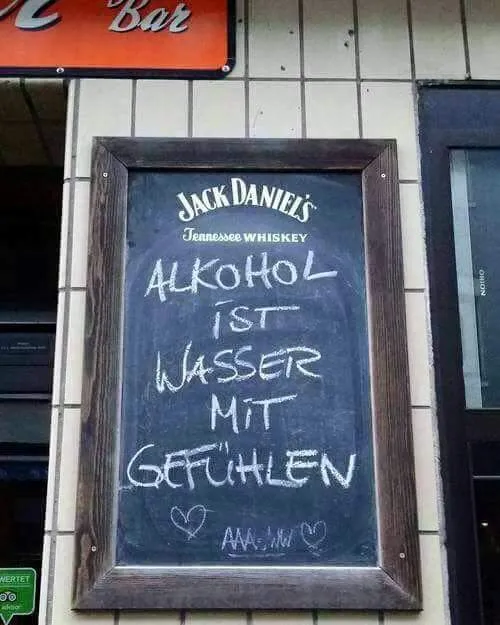 Bar
JACK DANIEL'S
Tennessee WHISKEY
ALKOHOL
iST
WASSER
MiT
GEFÜHLEN
ORION
WERTET